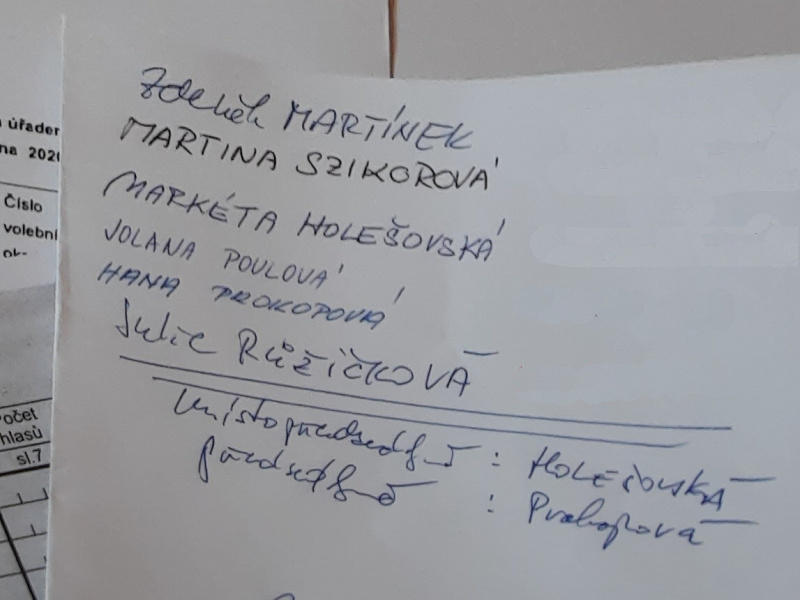 úřader
na 202
Číslo
volební
ok-
Počet
hlasů
sl.7
Zdeněk MARTÍNEK
MARTINA SZIKOROVÁ
MARKÉTA HOLEŠOVSKÁ
JOLANA POULOVÁ
HANA PROKOPOVÁ
Julie RŮŽIČKOVÁ
místopředsedkyně : HOLEŠOVSKÁ
předsedkyně : Prokopová